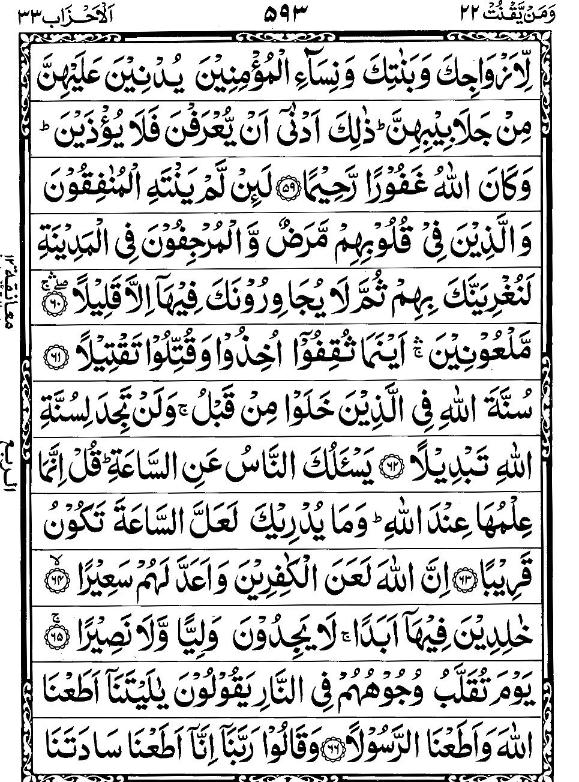 وَمَنْ يَّقْنُتْ ٢٢ ٥٩٣ اَلْاَحْزَاب ٣٣
لِّاَزْوَاجِكَ وَبَنٰتِكَ وَنِسَآءِ الْمُؤْمِنِيْنَ يُدْنِيْنَ عَلَيْهِنَّ
مِنْ جَلَابِيْبِهِنَّ ؕ ذٰلِكَ اَدْنٰۤى اَنْ يُّعْرَفْنَ فَلَا يُؤْذَيْنَ ؕ
وَكَانَ اللّٰهُ غَفُوْرًا رَّحِيْمًا ﴿٥٩﴾ لَىِٕنْ لَّمْ يَنْتَهِ الْمُنٰفِقُوْنَ
وَالَّذِيْنَ فِيْ قُلُوْبِهِمْ مَّرَضٌ وَّ الْمُرْجِفُوْنَ فِى الْمَدِيْنَةِ
لَنُغْرِيَنَّكَ بِهِمْ ثُمَّ لَا يُجَاوِرُوْنَكَ فِيْهَاۤ اِلَّا قَلِيْلًا ﴿٦٠﴾
مَّلْعُوْنِيْنَ ۛۚ اَيْنَمَا ثُقِفُوْۤا اُخِذُوْا وَقُتِّلُوْا تَقْتِيْلًا ﴿٦١﴾
سُنَّةَ اللّٰهِ فِى الَّذِيْنَ خَلَوْا مِنْ قَبْلُ ۚ وَلَنْ تَجِدَ لِسُنَّةِ
اللّٰهِ تَبْدِيْلًا ﴿٦٢﴾ يَسْـَٔلُكَ النَّاسُ عَنِ السَّاعَةِ ؕ قُلْ اِنَّمَا
عِلْمُهَا عِنْدَ اللّٰهِ ؕ وَمَا يُدْرِيْكَ لَعَلَّ السَّاعَةَ تَكُوْنُ
قَرِيْبًا ﴿٦٣﴾ اِنَّ اللّٰهَ لَعَنَ الْكٰفِرِيْنَ وَاَعَدَّ لَهُمْ سَعِيْرًا ۙ﴿٦٤﴾
خٰلِدِيْنَ فِيْهَاۤ اَبَدًا ۚ لَا يَجِدُوْنَ وَلِيًّا وَّلَا نَصِيْرًا ۚ﴿٦٥﴾
يَوْمَ تُقَلَّبُ وُجُوْهُهُمْ فِى النَّارِ يَقُوْلُوْنَ يٰلَيْتَنَاۤ اَطَعْنَا
اللّٰهَ وَاَطَعْنَا الرَّسُوْلَا ﴿٦٦﴾ وَقَالُوْا رَبَّنَاۤ اِنَّاۤ اَطَعْنَا سَادَتَنَا
معانقة ١٢
الربع